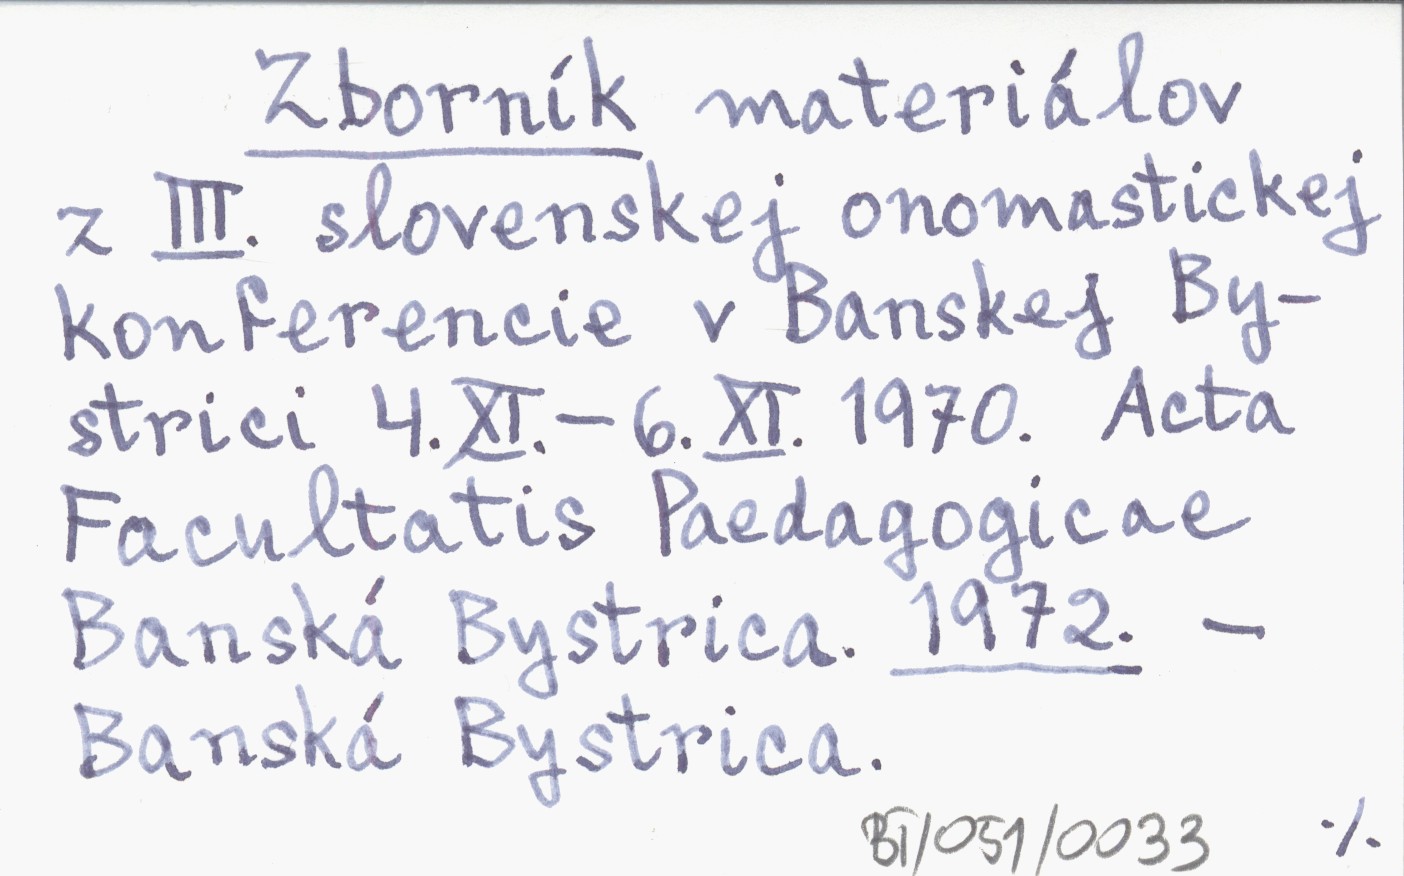 Zborník materiálov
z III. slovenskej onomastickej
konferencie v Banskej By-
strici 4.XI.-6.XI. 1970. Acta
Facultatis Paedagogicae
Banská Bystrica. 1972. -
Banská Bystrica.
BT/051/0033 ·/.